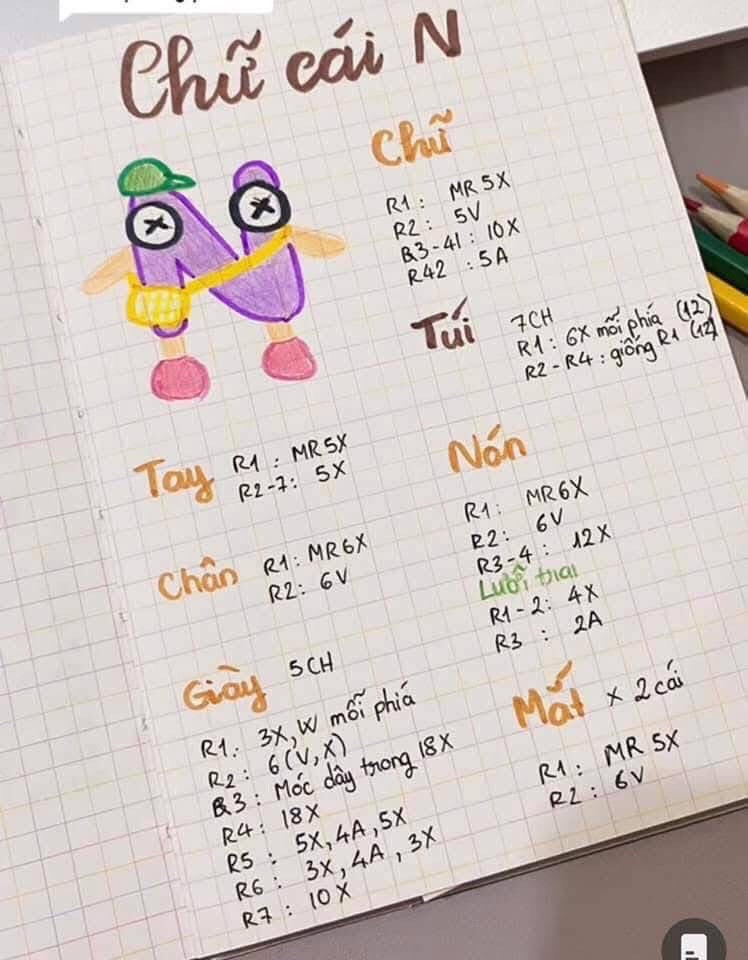 Chữ cái N
Chữ
R1: MR 5X
R2: 5V
R3-41: 10X
R42: 5A
Túi
7CH
R1: 6X mỗi phía (12)
R2-R4: giống R1 (12)
Tay
R1: MR5X
R2-7: 5X
Nón
R1: MR6X
R2: 6V
R3-4: 12X
Lưỡi trai
R1-2: 4X
R3: 2A
Chân
R1: MR6X
R2: 6V
Giày
5CH
R1: 3X, W mỗi phía
R2: 6(V,X)
R3: Móc dây trong 18X
R4: 18X
R5: 5X, 4A, 5X
R6: 3X, 4A, 3X
R7: 10X
Mắt x 2 cái
R1: MR 5X
R2: 6V